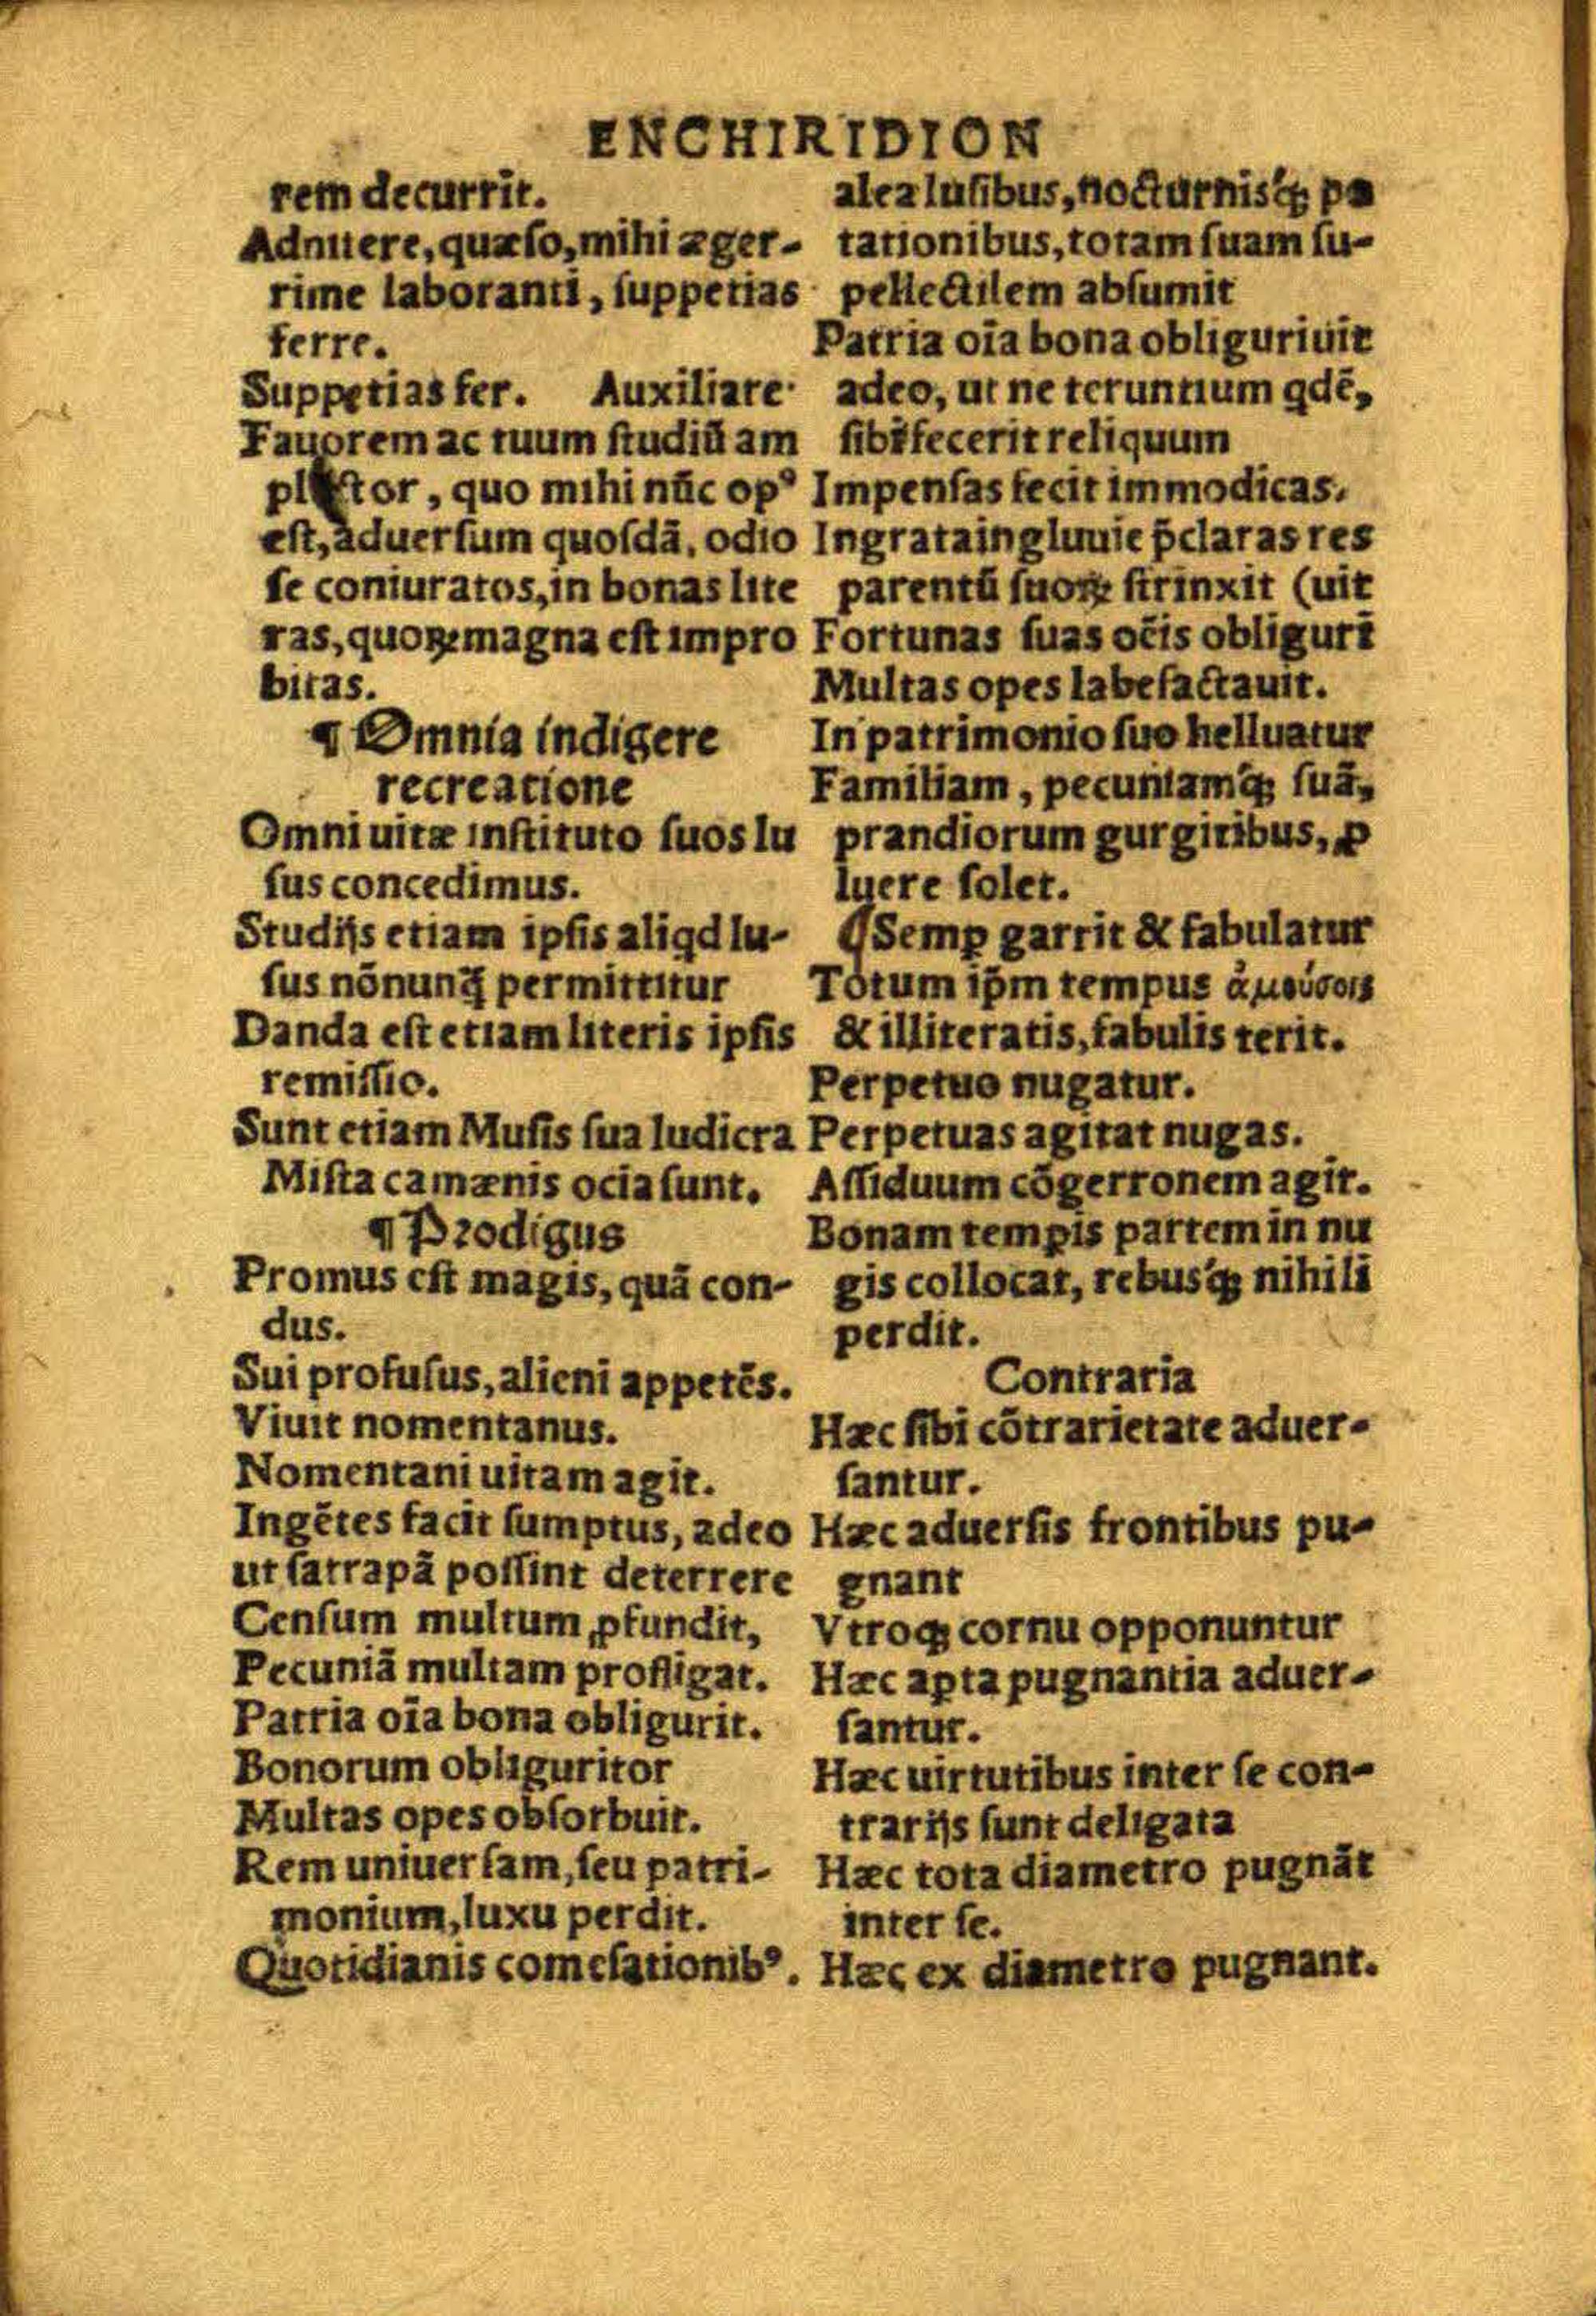 ENCHIRIDION
rem decurrit.
Adnuere, quæſo, mihi æger-
rime laboranti, ſuppetias
ferre.
Suppetias fer. Auxiliare
Fauorem ac tuum ſtudiũ am
plector, quo mihi nũc op⁹
eſt, aduerſum quoſdã, odio
ſe coniuratos, in bonas lite
ras, quoꝝ magna eſt impro
bitas.
¶ Omnia indigere
recreatione
Omni uitæ inſtituto ſuos lu
ſus concedimus.
Studijs etiam ipſis aliqd lu-
ſus nõnunꝗ̃ permittitur
Danda eſt etiam literis ipſis
remiſſio.
Sunt etiam Muſis ſua ludicra
Miſta camænis ocia ſunt.
¶ Prodigus
Promus eſt magis, quã con-
dus.
Sui profuſus, alieni appetẽs.
Viuit nomentanus.
Nomentani uitam agit.
Ingẽtes facit ſumptus, adeo
ut ſatrapã poſſint deterrere
Cenſum multum ꝓfundit,
Pecuniã multam profligat.
Patria oĩa bona obligurit.
Bonorum obliguritor
Multas opes obſorbuit.
Rem uniuerſam, ſeu patri-
monium, luxu perdit.
Quotidianis comeſationib⁹.
alea luſibus, nocturnisq́; po
tationibus, totam ſuam ſu-
pellectilem abſumit
Patria oĩa bona obliguriuit
adeo, ut ne teruntium qdẽ,
ſibi fecerit reliquum
Impenſas fecit immodicas.
Ingrata ingluuie p̃claras res
parentũ ſuoꝝ ſtrinxit (uit
Fortunas ſuas oẽis obligurĩ
Multas opes labefactauit.
In patrimonio ſuo helluatur
Familiam, pecuniamq́; ſuã,
prandiorum gurgitibus, ꝓ
luere ſolet.
¶ Semꝑ garrit & fabulatur
Totum ip̃m tempus ἀμούσοις
& illiteratis, fabulis terit.
Perpetuo nugatur.
Perpetuas agitat nugas.
Aſſiduum cõgerronem agit.
Bonam temꝑis partem in nu
gis collocat, rebusq́; nihili
perdit.
Contraria
Hæc ſibi cõtrarietate aduer-
ſantur.
Hæc aduerſis frontibus pu-
gnant
Vtroq; cornu opponuntur
Hæc aꝑta pugnantia aduer-
ſantur.
Hæc uirtutibus inter ſe con-
trarijs ſunt deligata
Hæc tota diametro pugnãt
inter ſe.
Hæc ex diametro pugnant.